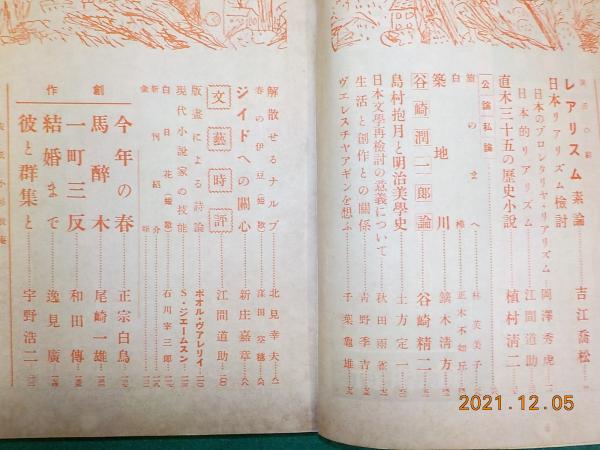 レアリスム素論 吉江喬松
日本リアリズム檢討
日本のプロレタリヤ・リアリズム 岡澤秀虎
日本的リアリズム 江間道助
直木三十五の歴史小説 植村清二
公論私論
旅のまへ 林芙美子
白樺 正木不如丘
築地川 鏑木清方
谷崎潤一郎論 谷崎精二
島村抱月と明治美學史 土方定一
日本文學再檢討の意義について 秋田雨雀
生活と創作との關係 青野季吉
ヴエレスチヤアギンを想ふ 千葉龜雄
解散せるナルプ 北見幸夫
春の伊豆(短歌) 窪田空穗
ジイドへの關心 新庄嘉章
文藝時評 江間道助
版畫による詩論 ポオル・ヴアレリイ
現代小説家の技能 S・ジェームスン
白日花(短歌) 石川宰三郎
新刊紹介
創作
今年の春 正宗白鳥
馬醉木 尾崎一雄
一町三反 和田傳
結婚まで 逸見廣
彼と群集と 宇野浩二
2021.12.05